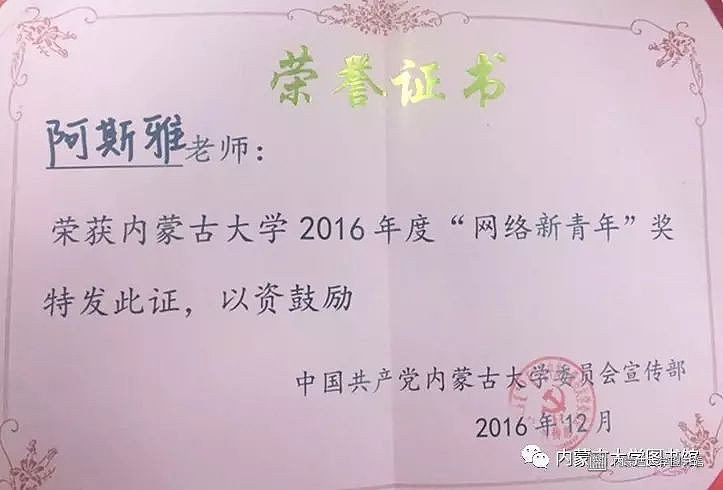 荣誉证书
阿斯雅老师：
荣获内蒙古大学2016年度“网络新青年”奖
特发此证，以资鼓励
中国共产党内蒙古大学委员会宣传部
2016年12月
内蒙古大学图书馆